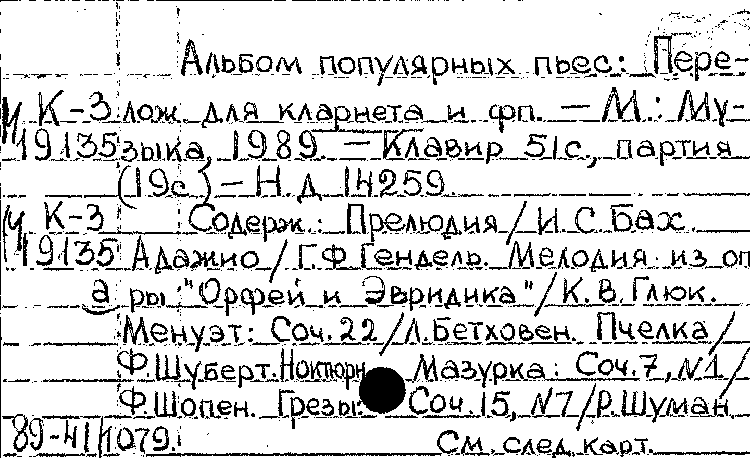 Альбом популярных пьес: Пере-
Ч К-3 лож. для кларнета и фп. - М.: Му-
19135 зыка, 1989. - Клавир 51с., партия
(19с) - Н.д 14259.
Ч К-3 Содерж.: Прелюдия / И.С.Бах.
19135 Адажио / Г.Ф.Гендель. Мелодия из оп
а ры: "Орфей и Эвридика" / К.В.Глюк.
Менуэт: Соч.22 / Л.Бетховен. Пчелка /
Ф.Шуберт. Ноктюрн Мазурка: Соч.7, N1 /
Ф.Шопен. Грезы: Соч.15, N7 / Р.Шуман
89-41 1079.
См. след. карт.